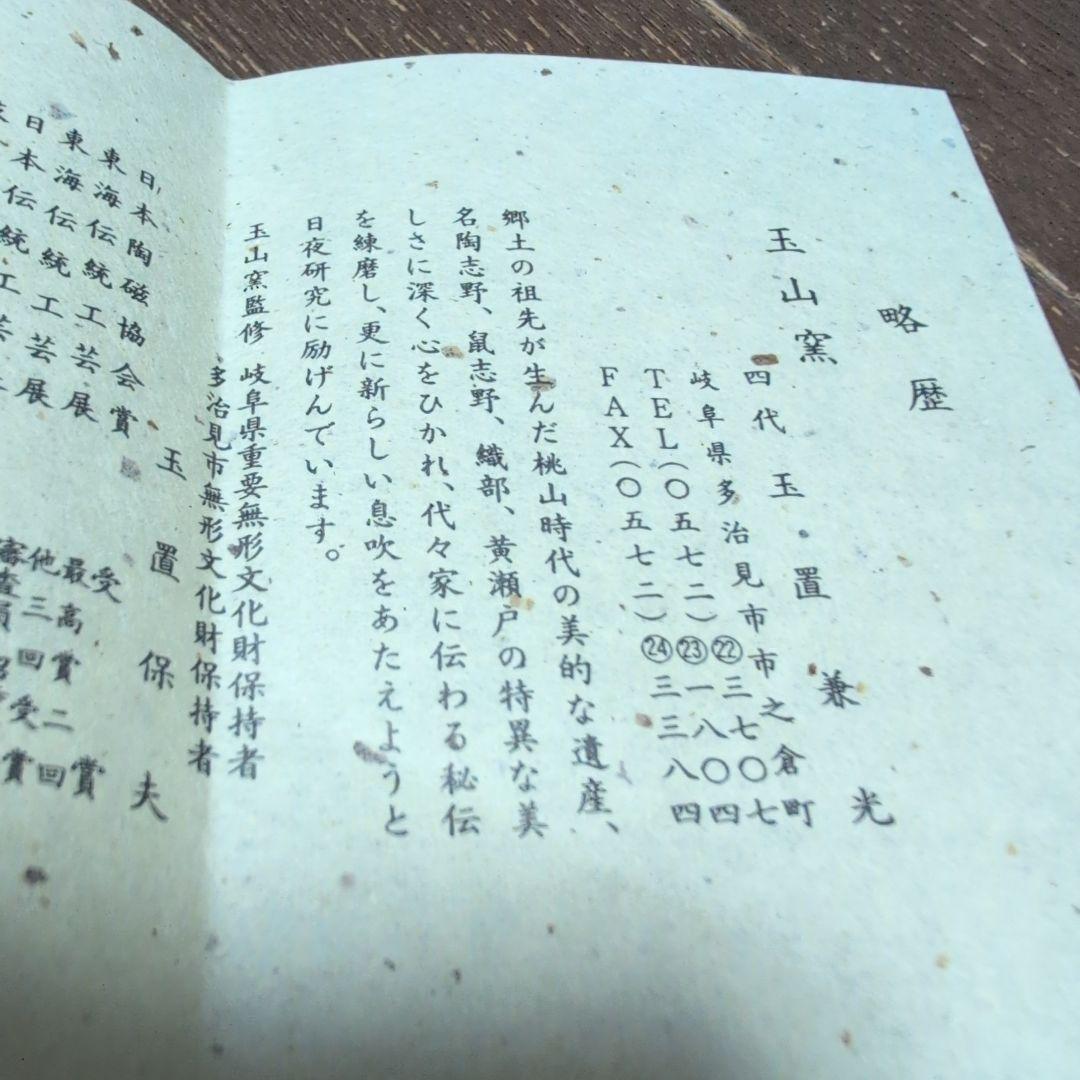 略歴
玉山窯 四代 玉置兼光
岐阜県多治見市市之倉町
TEL(〇五七二)㉒三七〇七
㉓一八〇四
FAX(〇五七二)㉔三三八四
郷土の祖先が生んだ桃山時代の美的な遺産、
名陶志野、鼠志野、織部、黄瀬戸の特異な美
しさに深く心をひかれ、代々家に伝わる秘伝
を練磨し、更に新らしい息吹をあたえようと
日夜研究に励げんでいます。
玉山窯監修 岐阜県重要無形文化財保持者
多治見市無形文化財保持者
玉置保夫
日本陶磁協会賞 受賞
東海伝統工芸展 最高賞二回
東海伝統工芸展 他三回受賞
日本伝統工芸 審査員